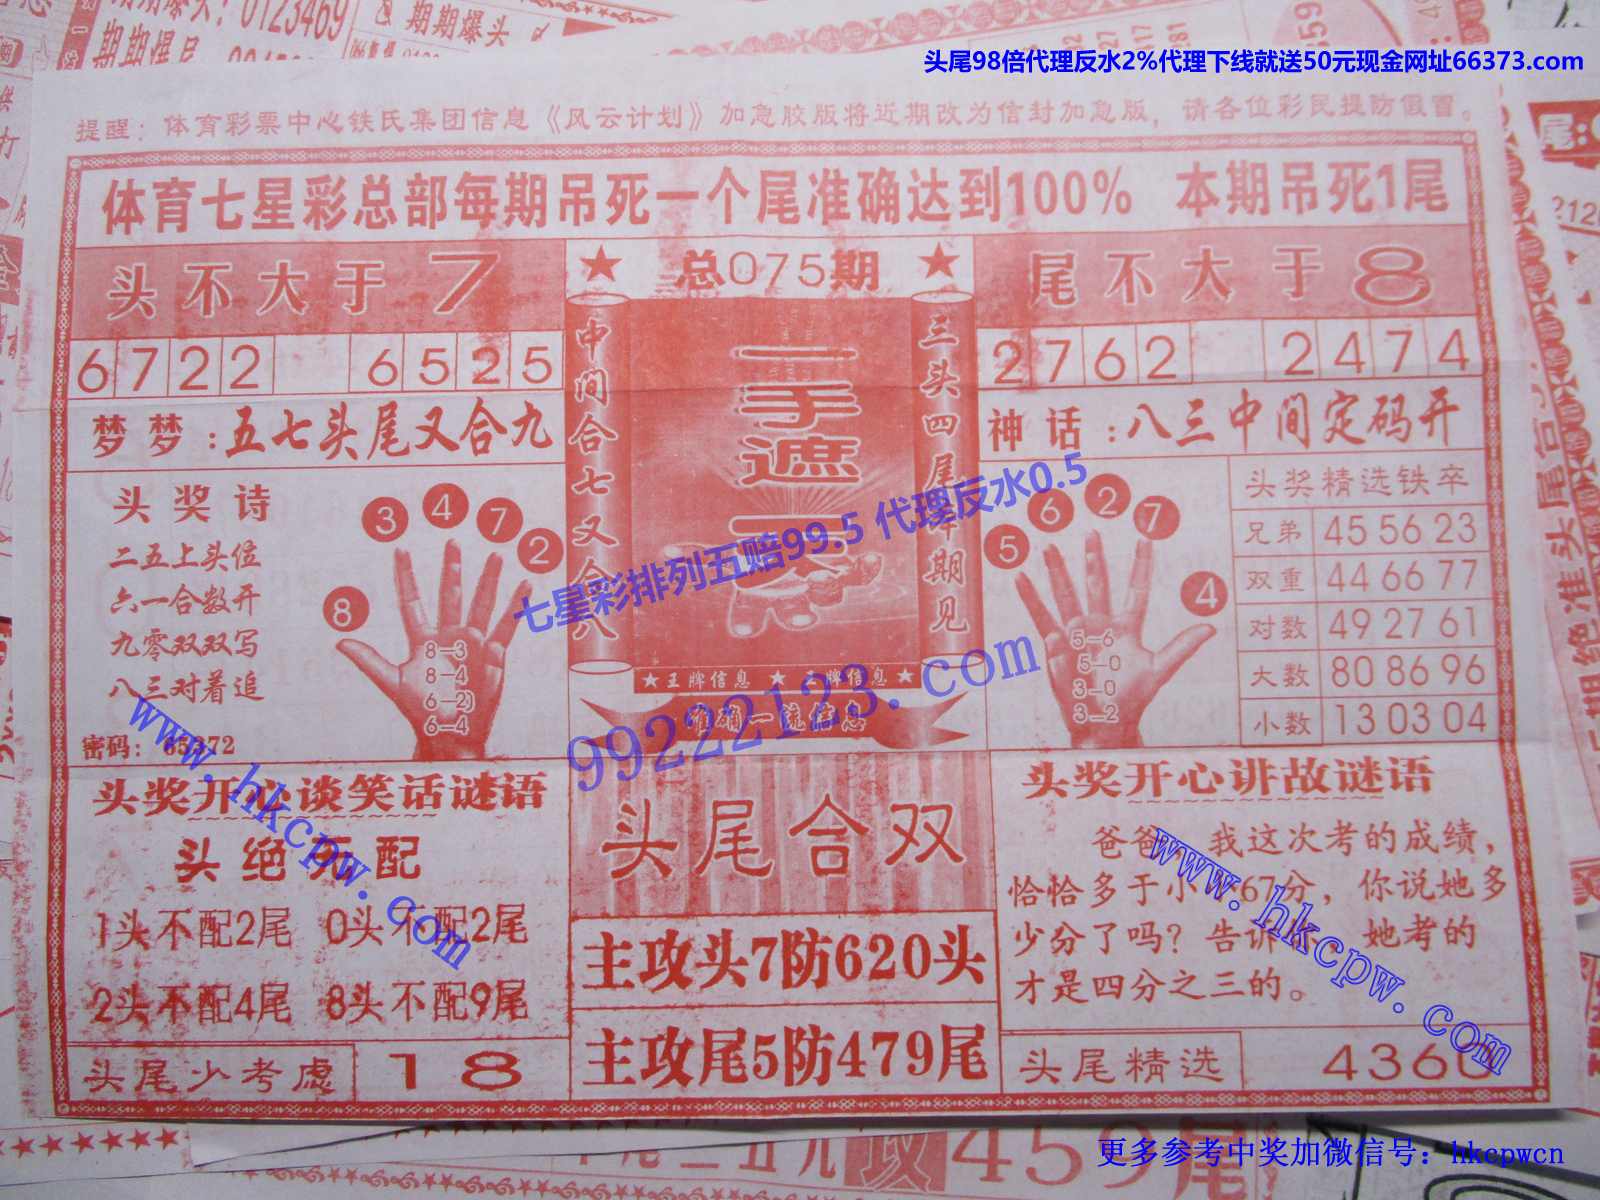 头尾98倍代理反水2%代理下线就送50元现金网址66373.com
提醒：体育彩票中心铁氏集团信息《风云计划》加急胶版将近期改为信封加急版，请各位彩民提防假冒。
体育七星彩总部每期吊死一个尾准确达到100% 本期吊死1尾
头不大于7
6722 6525
梦梦：五七头尾又合九
头奖诗
二五上头位
六一合数开
九零双双写
八三对着追
密码：65372
8 3 4 7 2
8-3
8-4
6-2
6-4
★ 总075期 ★
中间合七又合八
一手遮天
三头四尾准期见
★王牌信息 ★ 王牌信息★
准确一流信息
尾不大于8
2762 2474
神话：八三中间定码开
5 6 2 7 4
5-6
5-0
3-0
3-2
头奖精选铁卒
兄弟 45 56 23
双重 44 66 77
对数 49 27 61
大数 80 86 96
小数 13 03 04
七星彩排列五赔99.5 代理反水0.5
99222123.com
www.hkcpw.com
头奖开心谈笑话谜语
头绝死配
1头不配2尾 0头不配2尾
2头不配4尾 8头不配9尾
头尾少考虑 18
头尾合双
主攻头7防620头
主攻尾5防479尾
头奖开心讲故谜语
爸爸，我这次考的成绩，
恰恰多于小 67分，你说她多
少分了吗？告诉 她考的
才是四分之三的。
www.hkcpw.com
头尾精选 436
459尾
更多参考中奖加微信号：hkcpwcn